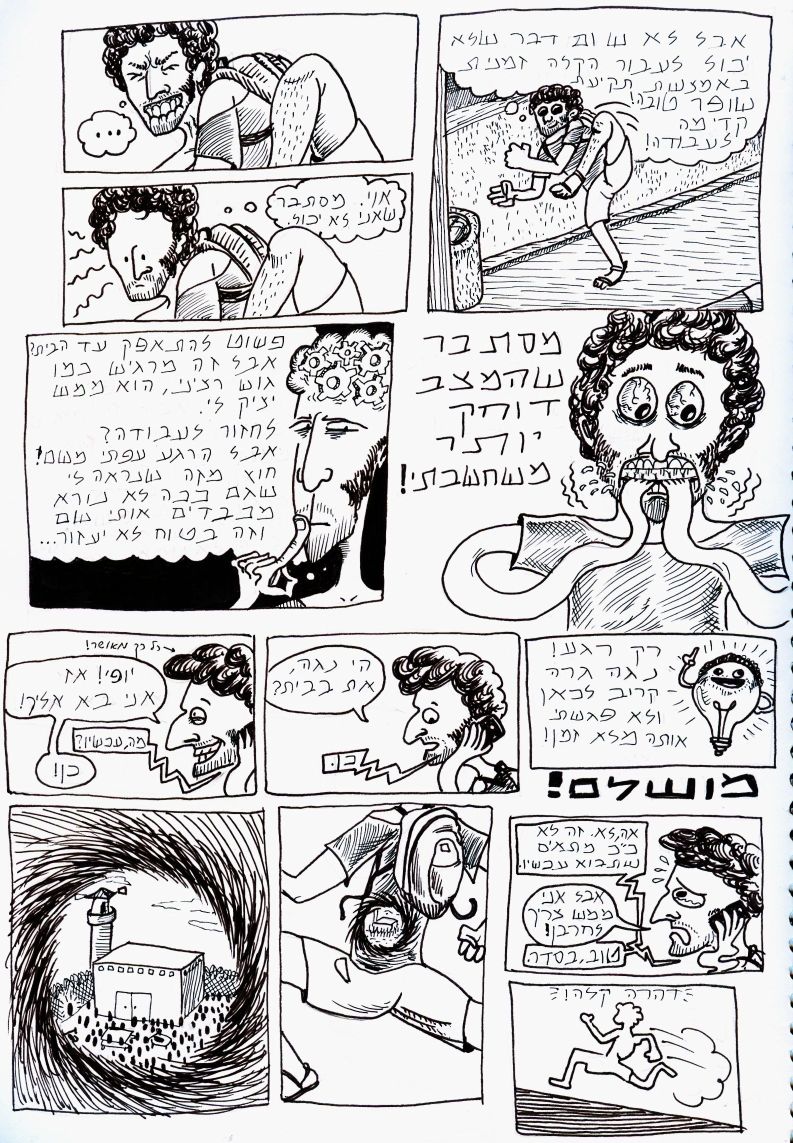 אבל לא שום דבר שלא
יכול לעבור הקלה זמנית
באמצעות תקיעת
שופר טובה!
קדימה
לעבודה!
...
אני. מסתבר
שאני לא יכול.
מסתבר
שהמצב
דוחק
יותר
משחשבתי!
פשוט להתאפק עד הבית?
אבל זה מרגיש כמו
גוש רציני, הוא ממש
יציק לי.
לחזור לעבודה?
אבל הרגע עפתי משם!
חוץ מזה שנראה לי
שגם ככה לא נורא
מכבדים אותי שם
וזה בטוח לא יעזור...
רק רגע!
נגה גרה
קרוב לכאן
ולא פגשתי
אותה מלא זמן!
מושלם!
הי נגה,
את בבית?
כן.
כל כך מאושר!
יופי! אז
אני בא אליך!
מה, עכשיו?
כן!
אה, לא. זה לא
כ"כ מתאים
שתבוא עכשיו.
אבל אני
ממש צריך
לחרבן!
טוב, בסדר.
דהרה קלה!